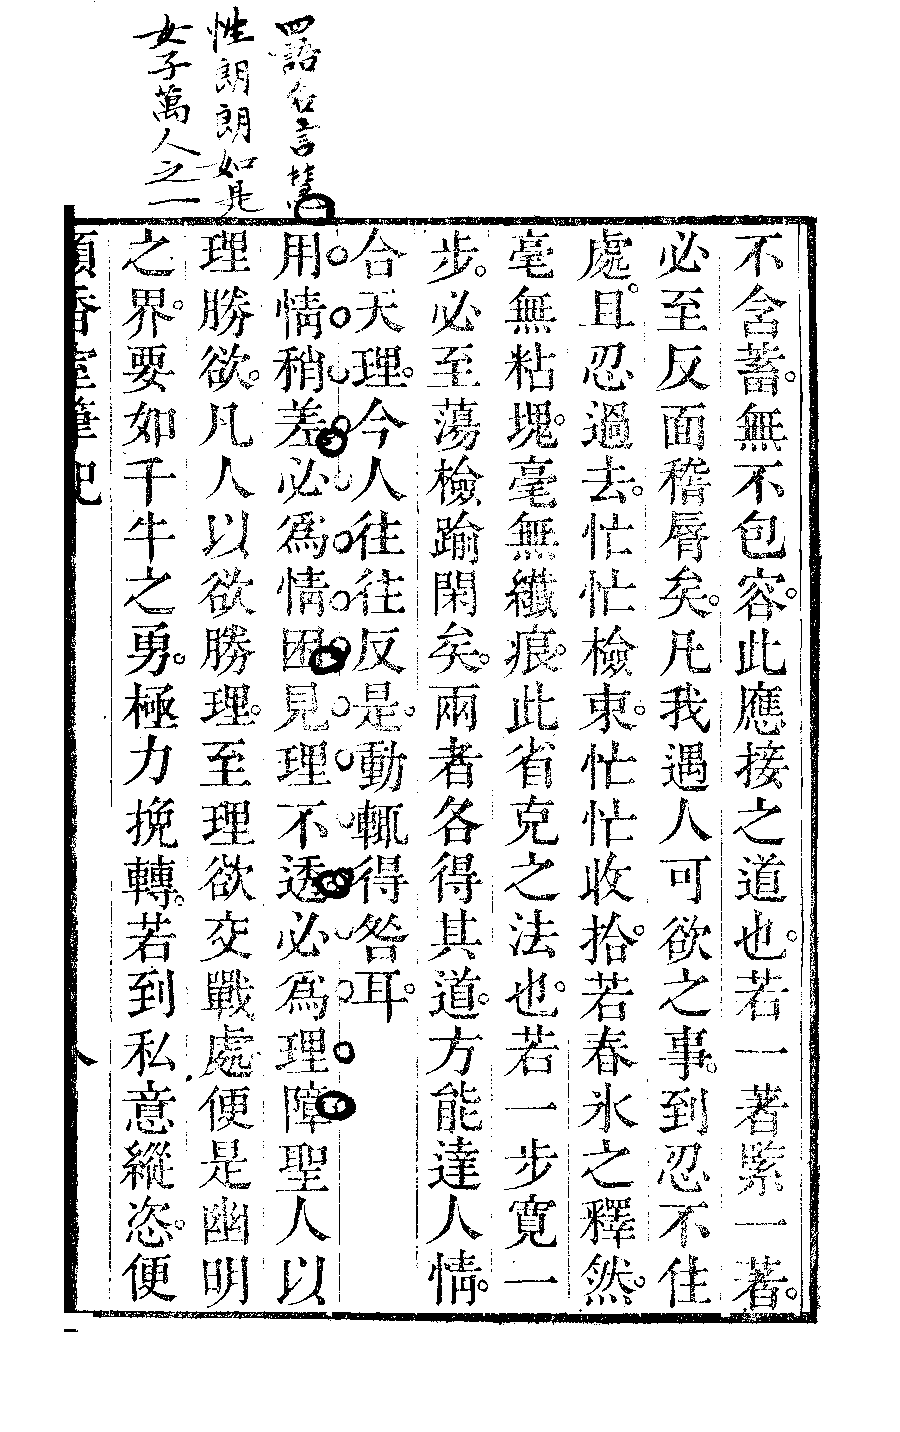 四語名言慧
性朗朗如是
女子萬人之一
不含蓄。無不包容。此應接之道也。若一著緊一著。
必至反面稽脣矣。凡我遇人可欲之事。到忍不住
處。且忍過去。忙忙檢束。忙忙收拾。若春氷之釋然。
毫無粘塊。毫無纖痕。此省克之法也。若一步寬一
步。必至蕩檢踰閑矣。兩者各得其道。方能達人情。
合天理。今人往往反是。動輒得咎耳。
用情稍差必為情困見理不透必為理障聖人以
理勝欲。凡人以欲勝理。至理欲交戰處便是幽明
之界。要如千牛之勇。極力挽轉。若到私意縱恣。便
香室筆記
八